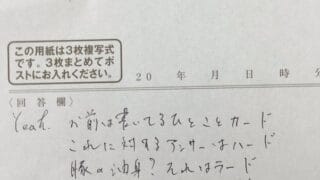 この用紙は3枚複写式
です。3枚まとめてポ
ストにお入れください。
20 年 月 日 時 分
〈回答欄〉
Yeah. お前は書いてるひとことカード
これに対するアンサーはハード
豚の油身?それはラード